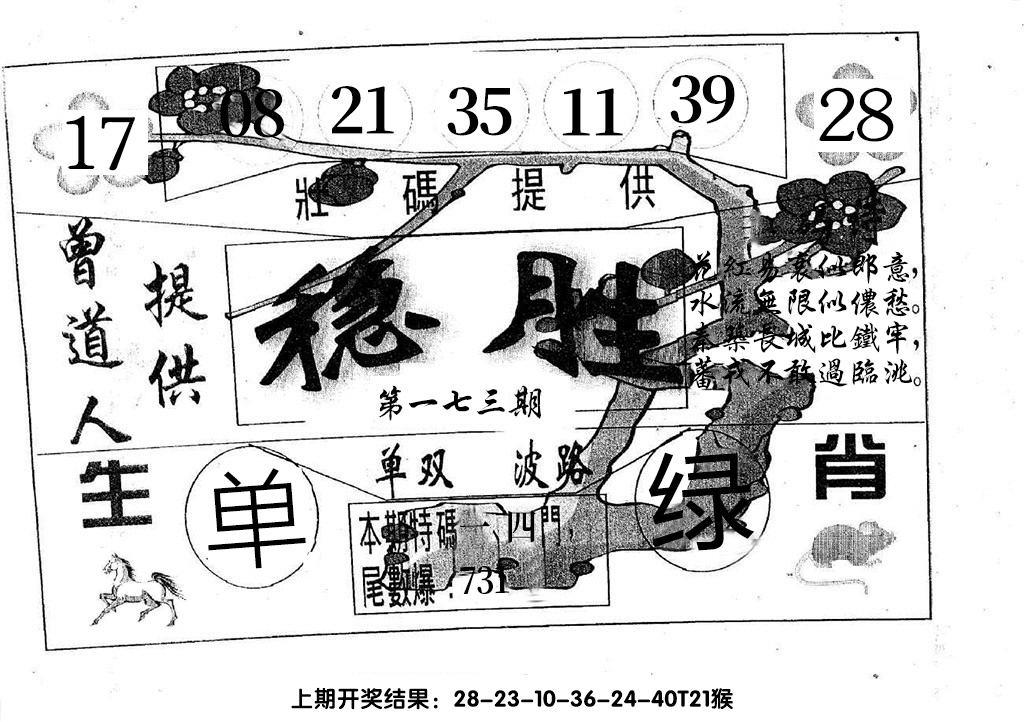 17 08 21 35 11 39 28
壯碼提供
曾道人
提供
稳胜
第一七三期
特
花红易衰似郎意,
水流無限似儂愁。
秦築長城比鐵牢,
蕃戎不敢過臨洮。
单双 波路
生肖
单
绿
本期特碼一、四門,
尾數爆:731
上期开奖结果：28-23-10-36-24-40T21猴